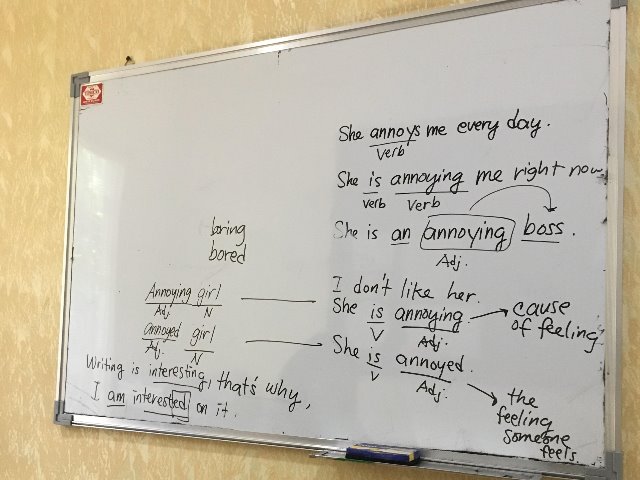 She annoys me every day.
Verb
She is annoying me right now
verb Verb
She is an annoying boss.
Adj.
boring
bored
Annoying girl
Adj. N
Annoyed girl
Adj. N
Writing is interesting, that's why,
I am interested on it.
I don't like her.
She is annoying. → cause
of feeling
V Adj.
She is annoyed.
V Adj.
the
feeling
someone
feels